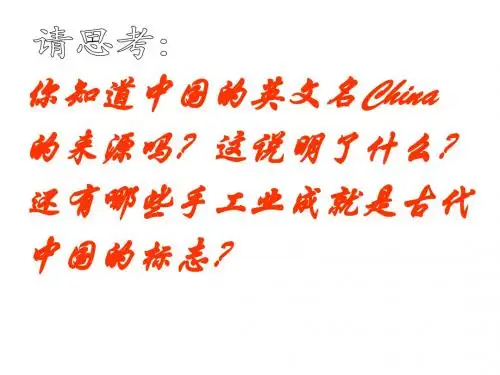 请思考：
你知道中国的英文名China
的来源吗？这说明了什么？
还有哪些手工业成就是古代
中国的标志？